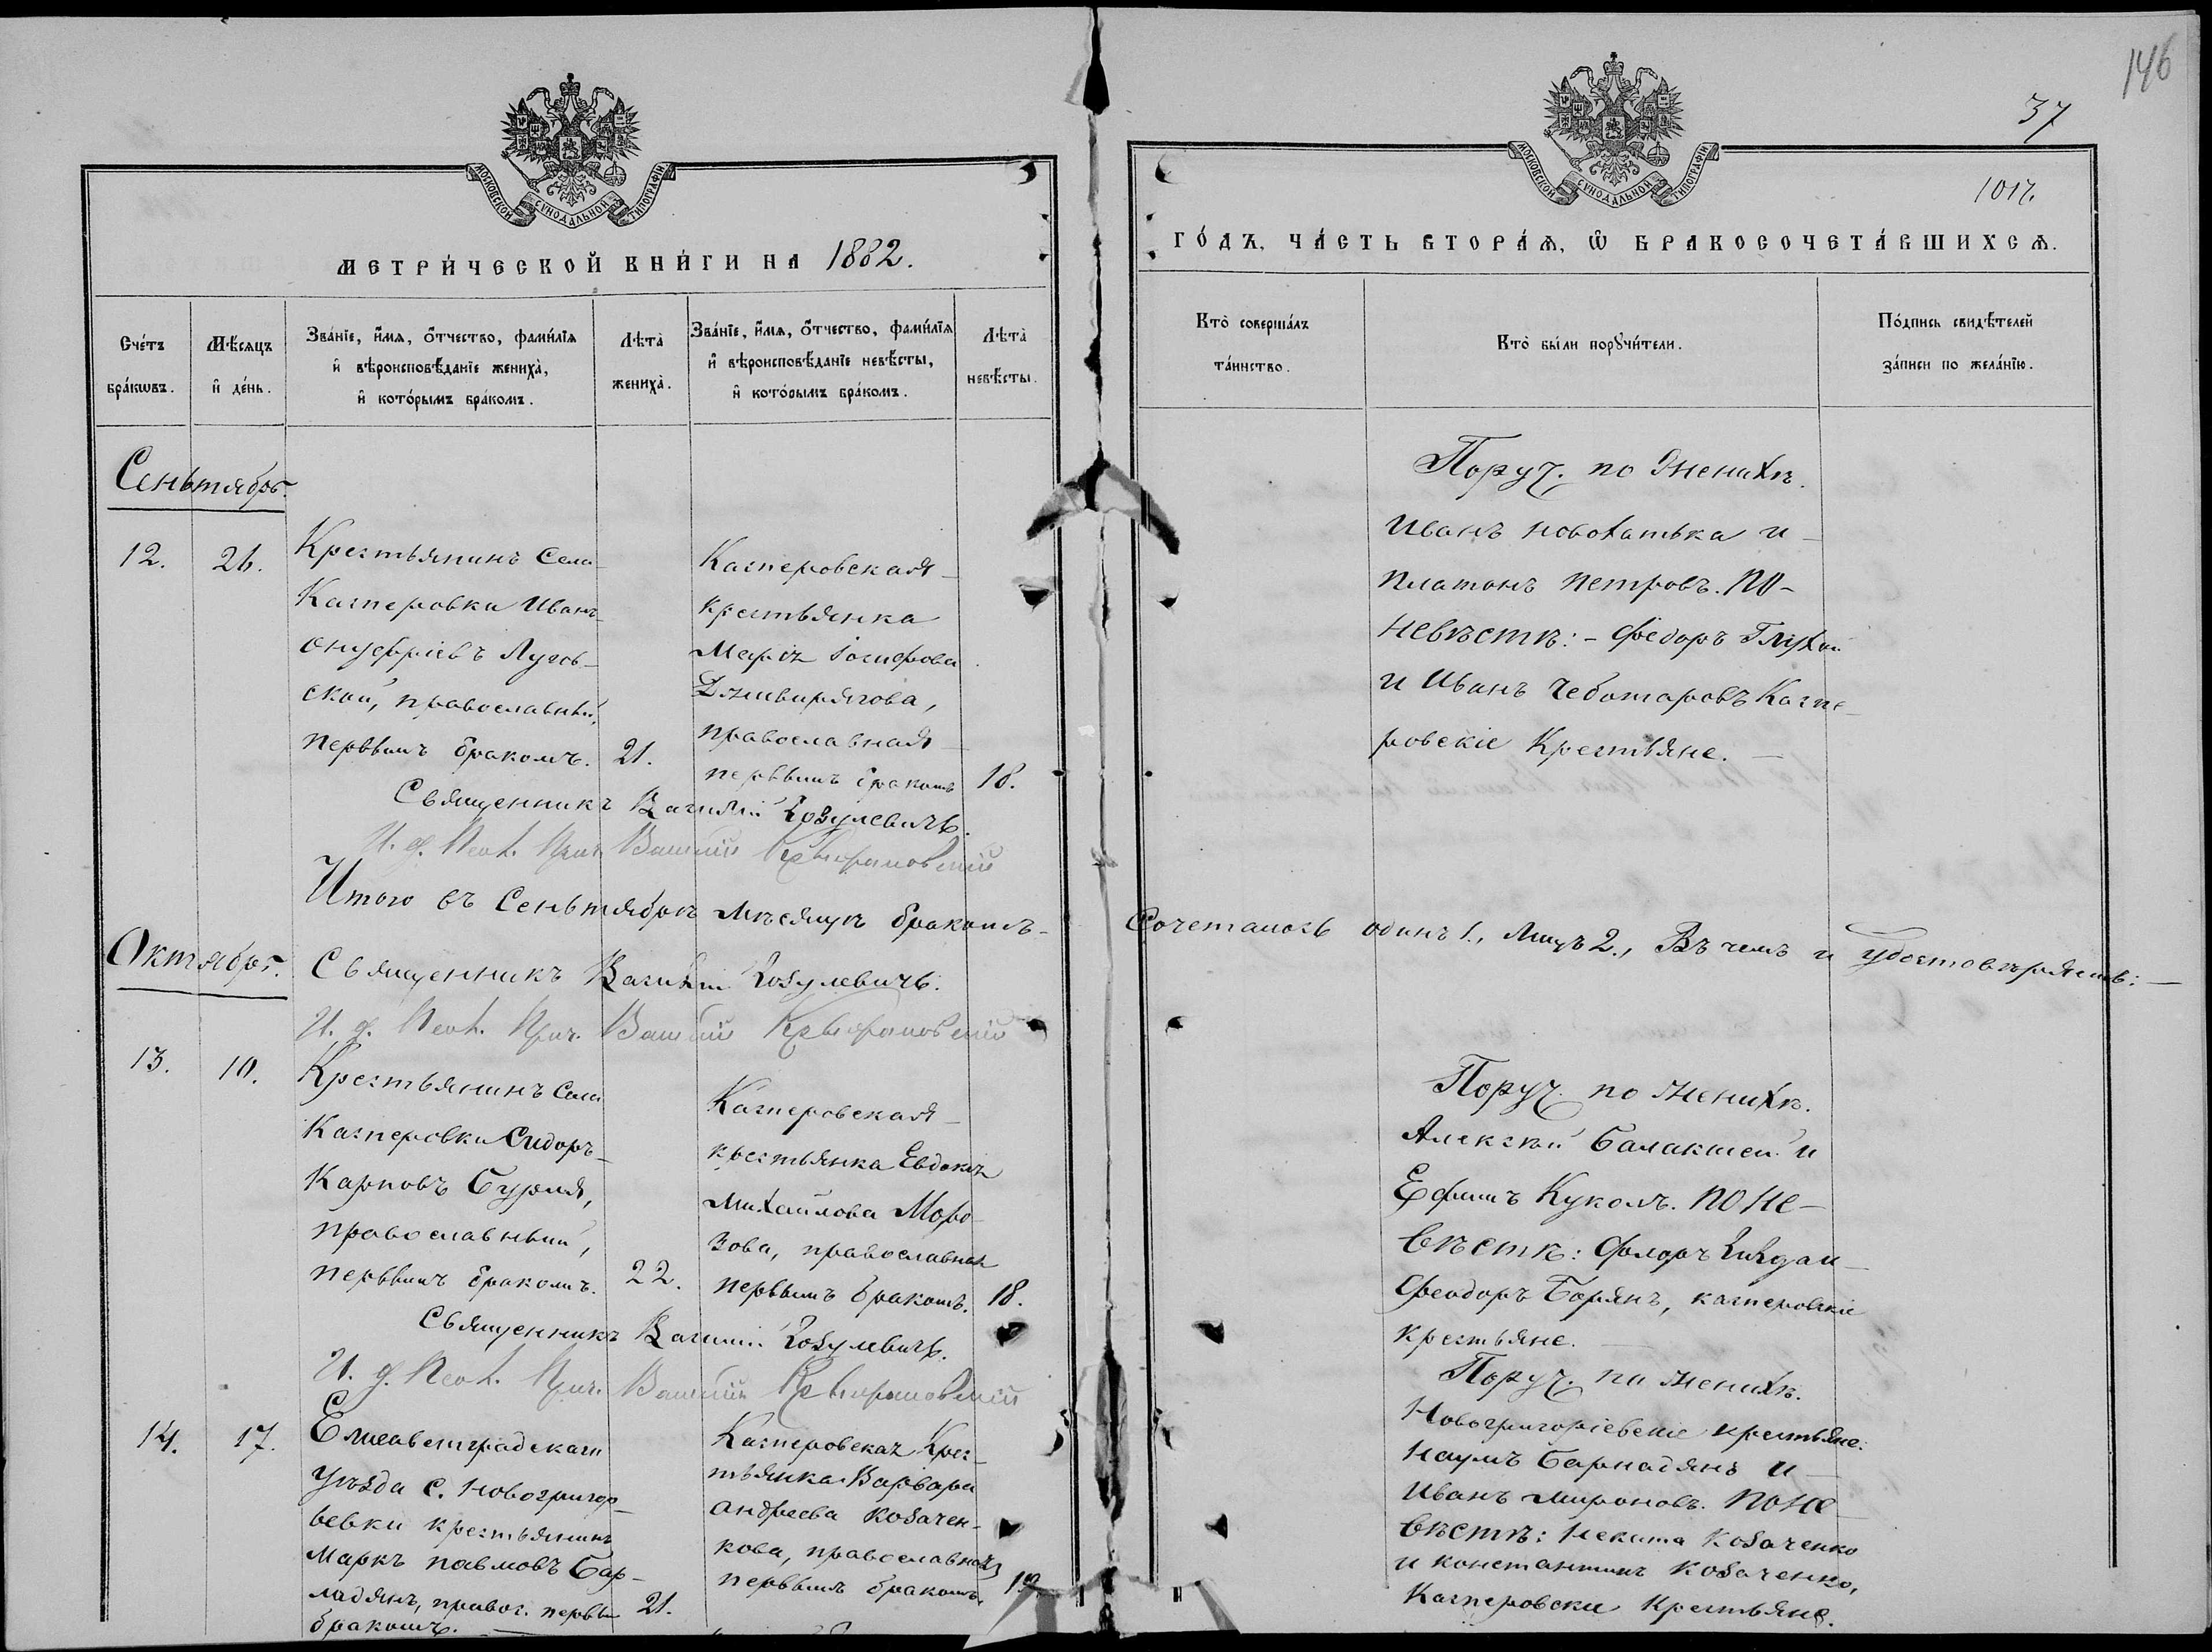 146
37
1017.
МОСКОВСКОЙ СУНОДАЛЬНОЙ ТИПОГРАФІИ
МОСКОВСКОЙ СУНОДАЛЬНОЙ ТИПОГРАФІИ
МЕТРИ́ЧЕСКОЙ КНИ́ГИ НА 1882.
ГО́ДЪ, ЧА́СТЬ ВТОРА́Ѧ, Ѿ БРАКОСОЧЕТА́ВШИХСѦ.
Сче́тъ бра́кѡвъ.
Мѣ́сяцъ и де́нь.
Зва́нїе, и́мя, о́тчество, фами́лїя и вѣроисповѣ́данїе жениха̀, и кото́рымъ бра́комъ.
Лѣ́та жениха̀.
Зва́нїе, и́мя, о́тчество, фами́лїя и вѣроисповѣ́данїе невѣ́сты, и кото́рымъ бра́комъ.
Лѣ́та невѣ́сты.
Кто̀ соверша́лъ та́инство.
Кто̀ бы́ли порꙋчи́тели.
По́дпись свидѣ́телей за́писи по жела́нїю.
Сеньтябрь.
12.
26.
Крестьянинъ Села
Касперовки Иванъ
Онуфріевъ Лугов-
ской, православный,
первымъ бракомъ.
21.
Касперовская
крестьянка
Марія Іосифова
православная
первымъ бракомъ
18.
Поруч. по Женихѣ.
Иванъ Новохатька и
Платонъ Петровъ. По-
невѣстѣ: - Федоръ Глухой
и Иванъ Чеботаровъ Каспе-
ровскіе Крестьяне.
Священникъ Василій Козулевичъ.
И. д. Псал. Прич. Василій
Итого въ Сеньтябрѣ мѣсяцѣ бракомъ-
Сочеталось одинъ 1., Лицъ 2., Въ чемъ и удостовѣряемъ: —
Октябрь.
Священникъ Василій Козулевичъ.
И. д. Псал. Прич. Василій
13.
10.
Крестьянинъ Села
Касперовки Сидоръ
Карповъ Бурля,
православный,
первымъ бракомъ.
22.
Касперовская
крестьянка Евдокія
Михайлова Моро-
зова, православная
первымъ бракомъ.
18.
Поруч. по Женихѣ.
Алексѣй Балакшей и
Ефимъ Куколъ. По не-
вѣстѣ:
Феодоръ Борянъ, касперовскіе
крестьяне.
Священникъ Василій Козулевичъ.
И. д. Псал. Прич. Василій
14.
17.
Елисаветградскаго
уѣзда с. Новогригор-
ьевки крестьянинъ
Маркъ Павловъ Бар-
ладянъ, правос. первым
бракомъ.
21.
Касперовская Крес-
тьянка Варвара
Андреева Козачен-
кова, православная
первымъ бракомъ.
Поруч. по Женихѣ.
Новогригоріевскіе крестьяне:
Наумъ Барладянъ и
Иванъ Мироновъ. По не
вѣстѣ: Никита Козаченко
и Константинъ Козаченко,
Касперовскіе Крестьяне.